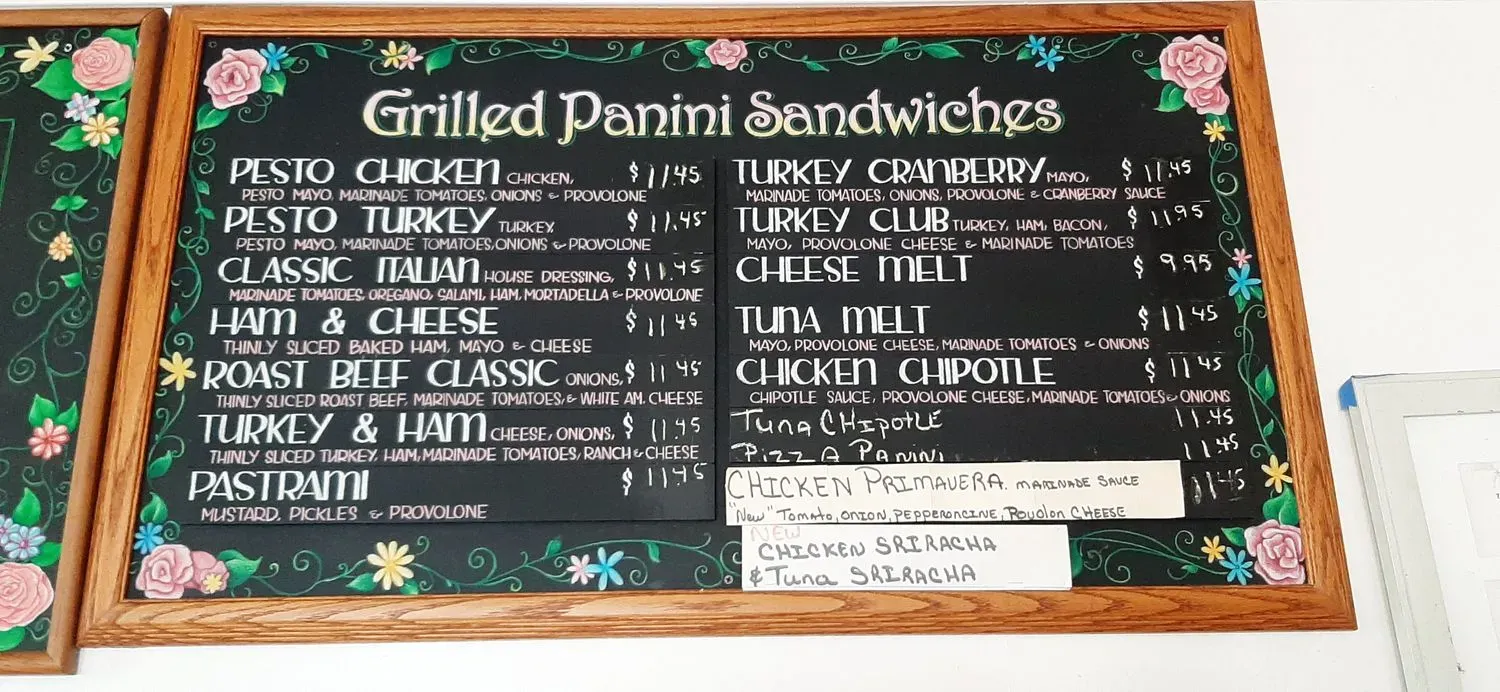 Grilled Panini Sandwiches
PESTO CHICKEN CHICKEN, $ 11.45
PESTO MAYO, MARINADE TOMATOES, ONIONS & PROVOLONE
PESTO TURKEY TURKEY, $ 11.45
PESTO MAYO, MARINADE TOMATOES, ONIONS & PROVOLONE
CLASSIC ITALIAN HOUSE DRESSING, $ 11.45
MARINADE TOMATOES, OREGANO, SALAMI, HAM, MORTADELLA & PROVOLONE
HAM & CHEESE $ 11 45
THINLY SLICED BAKED HAM, MAYO & CHEESE
ROAST BEEF CLASSIC ONIONS, $ 11 45
THINLY SLICED ROAST BEEF, MARINADE TOMATOES, & WHITE AM. CHEESE
TURKEY & HAM CHEESE, ONIONS, $ 11.45
THINLY SLICED TURKEY, HAM, MARINADE TOMATOES, RANCH & CHEESE
PASTRAMI $ 11.45
MUSTARD, PICKLES & PROVOLONE
TURKEY CRANBERRY MAYO, $ 11.45
MARINADE TOMATOES, ONIONS, PROVOLONE & CRANBERRY SAUCE
TURKEY CLUB TURKEY, HAM, BACON, $ 11.95
MAYO, PROVOLONE CHEESE & MARINADE TOMATOES
CHEESE MELT $ 9.95
TUNA MELT $ 11.45
MAYO, PROVOLONE CHEESE, MARINADE TOMATOES & ONIONS
CHICKEN CHIPOTLE $ 11.45
CHIPOTLE SAUCE, PROVOLONE CHEESE, MARINADE TOMATOES & ONIONS
Tuna CHIPOTLE 11.45
PIZZA PANINI 11.45
CHICKEN PRIMAVERA. MARINADE SAUCE 11.45
"New" Tomato, ONION, PEPPERONCINE, Povolon CHEESE
NEW
CHICKEN SRIRACHA
& Tuna SRIRACHA